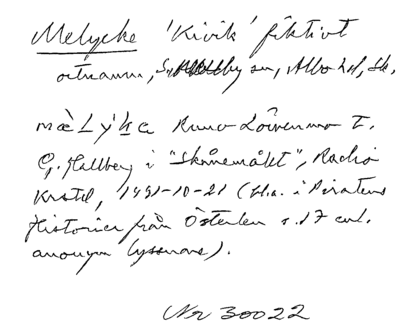 Melycke 'Kivik' fiktivt
ortnamn, S. Mellby sn, Albo hd, Sk.
mæLyka Runo Löwenmo t.
G. Hallberg i "Skånemålet", Radio
Krstd, 1991-10-21 (Bl.a. i Piratens
Historier från Österlen s. 17 enl.
anonym lyssnare).
Nr 30022